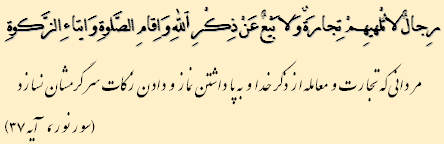 رِجالٌ لاتُلْهيهِمْ تِجارَةٌ وَلا بَيْعٌ عَنْ ذِكْرِ اللهِ وَ اِقامِ الصَّلوةِ وَ ايتاءِ الزَّكوةِ
مردانی که تجارت و معامله از ذکر خدا و به پا داشتن نماز و دادن زکات سرگرمشان نسازد
(سوره نور، آیه ۳۷)